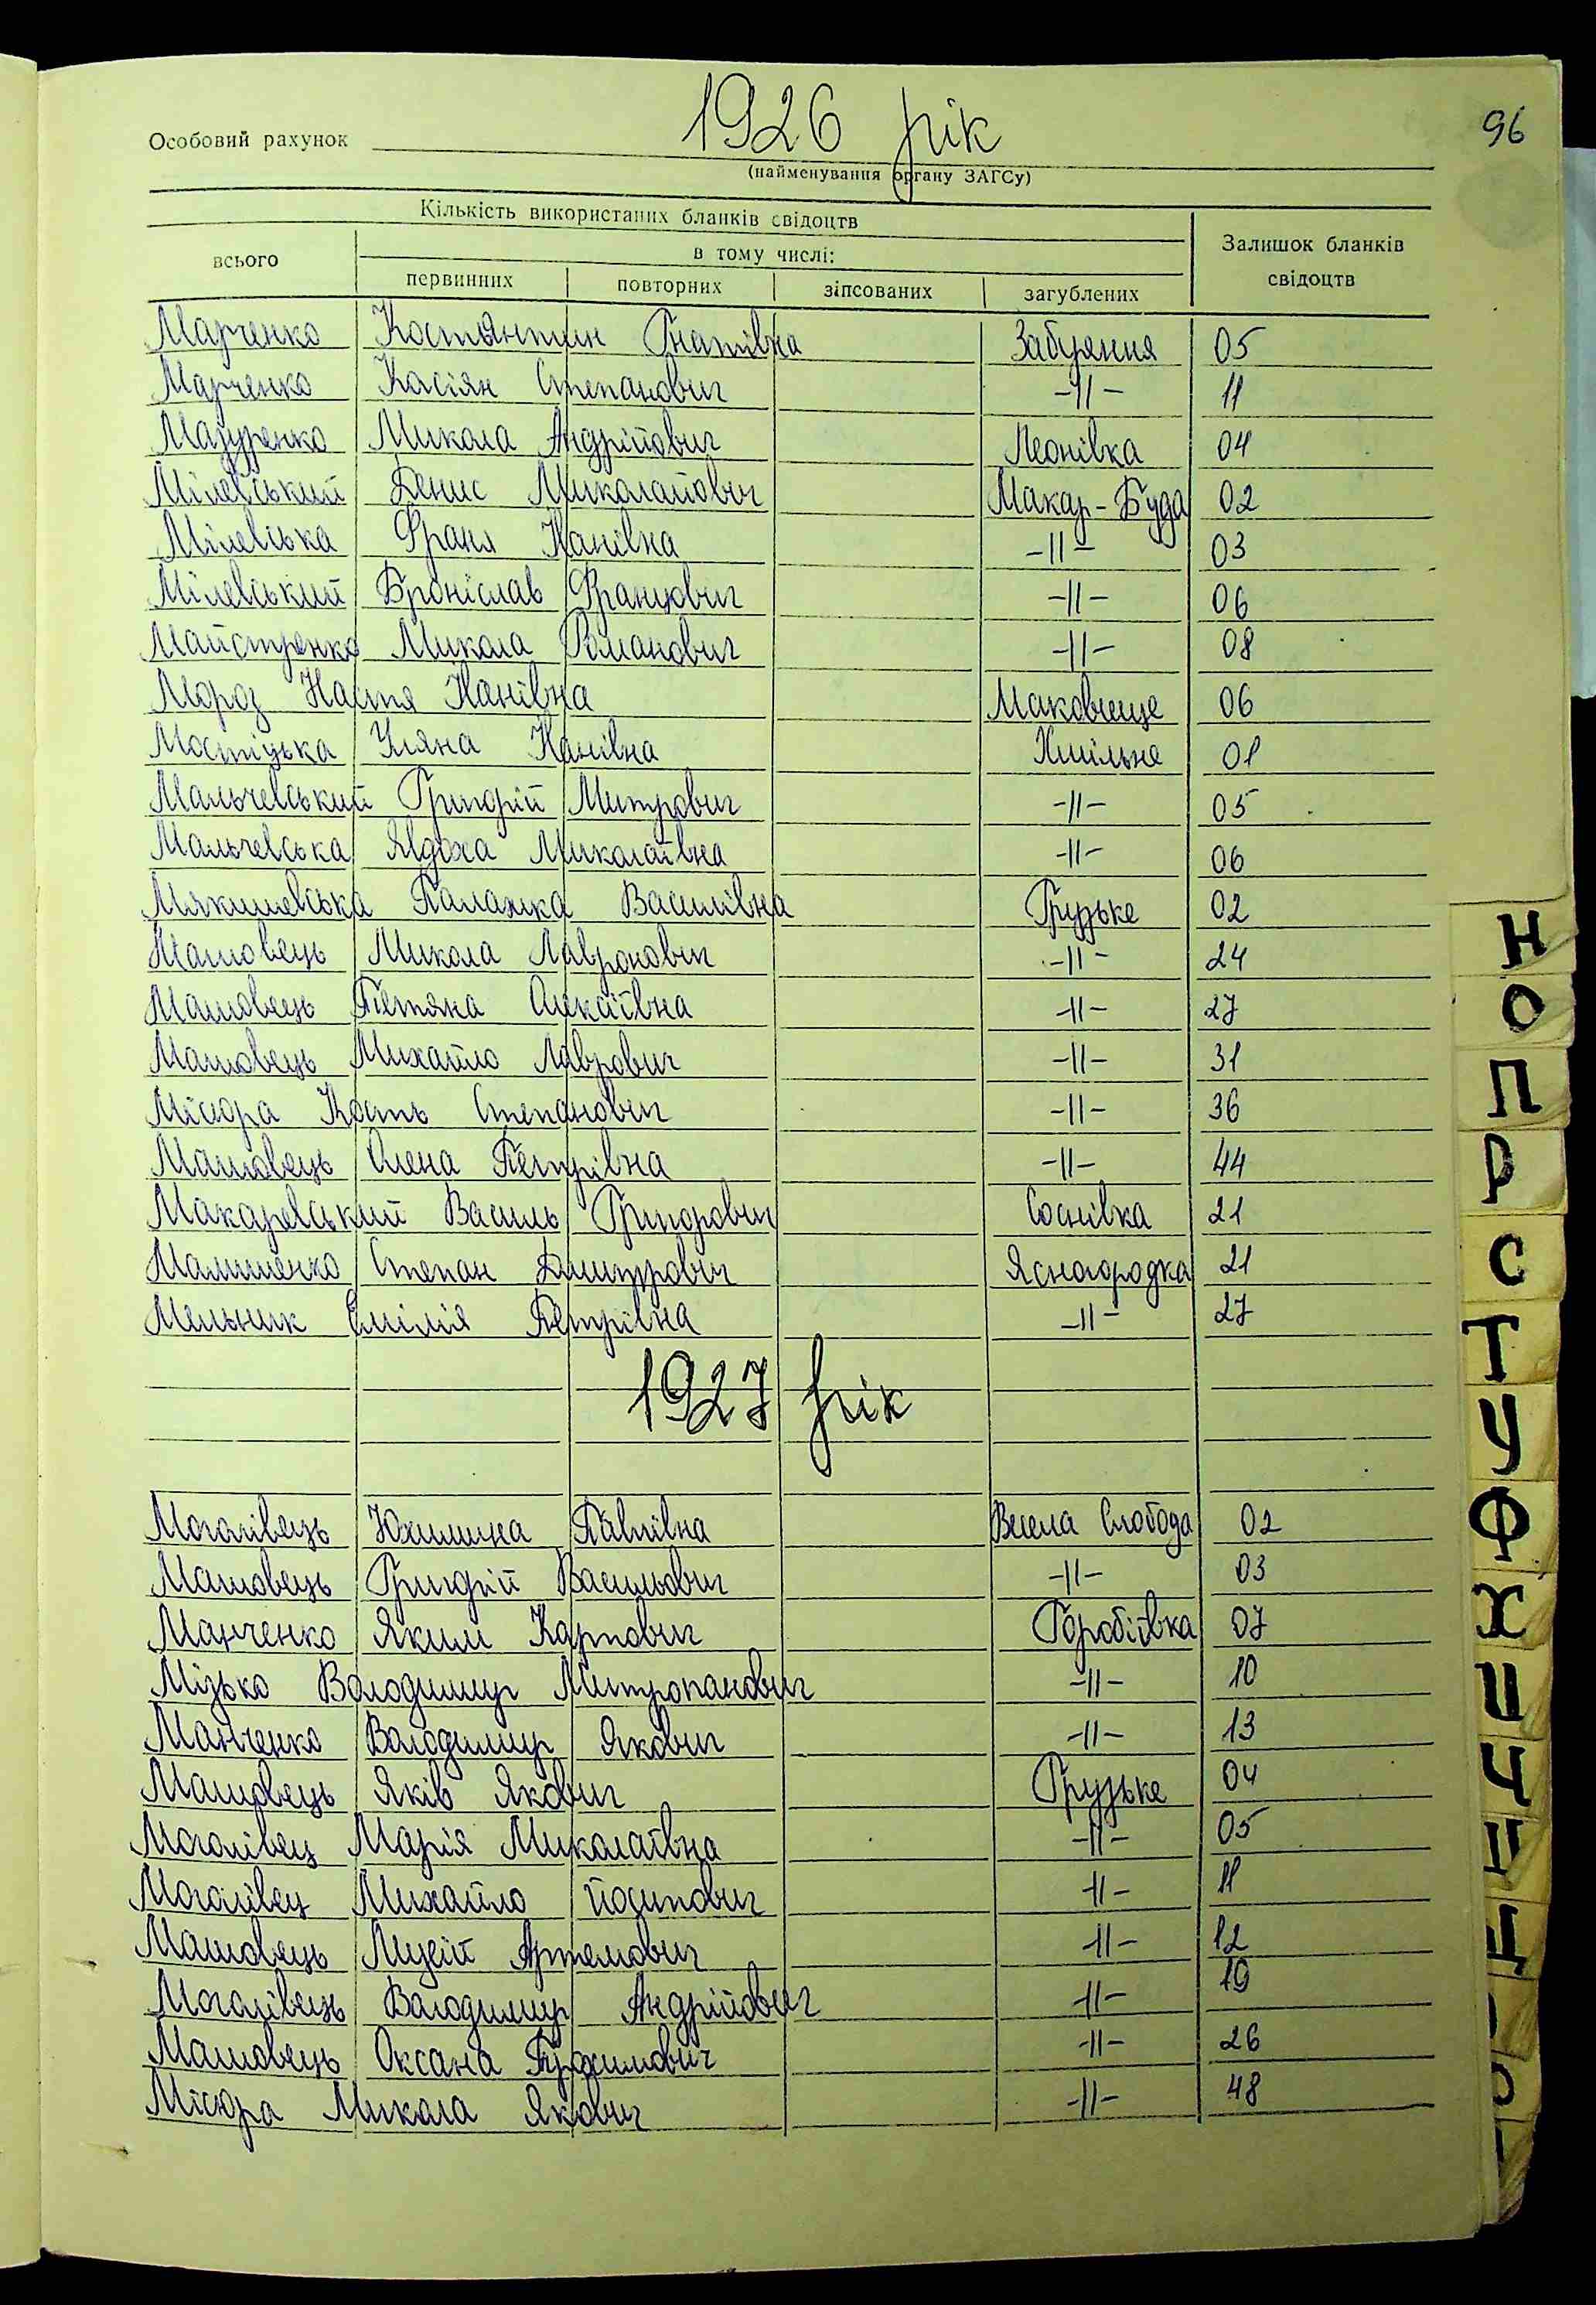 96
1926 рік
Особовий рахунок
(найменування органу ЗАГСу)
Кількість використаних бланків свідоцтв
Залишок бланків свідоцтв
всього
в тому числі:
первинних повторних зіпсованих загублених
Марченко Костянтин Гнатівна Забуяння 05
Марченко Касіян Степанович -||- 11
Мазуренко Микола Андрійович Леонівка 04
Мілевський Денис Миколайович Макар-Буда 02
Мілевська Франя Іванівна -||- 03
Мілевський Броніслав Францович -||- 06
Майстренко Микола Романович -||- 08
Мороз Настя Іванівна Маковище 06
Мостіцька Уляна Іванівна Хмільна 01
Мальчевський Григорій Митрович -||- 05
Мальчевська Явдоха Миколаївна -||- 06
Мякишевська Палажка Василівна Грузьке 02
Машовець Микола Лавронович -||- 24
Машовець Тетяна Олексіївна -||- 27
Машовець Михайло Лаврович -||- 31
Місюра Кость Степанович -||- 36
Машовець Олена Петрівна -||- 44
Макаревський Василь Григорович Соснівка 21
Малишенко Степан Дмитрович Ясногородка 21
Мельник Емілія Петрівна -||- 27
1927 рік
Могалівець Юхимина Павлівна Весела Слобода 02
Машовець Григорій Васильович -||- 03
Манченко Яким Карпович Горобіївка 07
Мізько Володимир Митропанович -||- 10
Манченко Володимир Якович -||- 13
Машовець Яків Якович Грузьке 04
Могалівец Марія Миколаївна -||- 05
Могалівец Михайло Йосипович -||- 11
Машовець Мусій Артемович -||- 12
Могалівець Володимир Андрійович -||- 19
Машовець Оксана Трохимович -||- 26
Місюра Микола Якович -||- 48
Н
О
П
Р
С
Т
У
Ф
Х
Ц
Ч